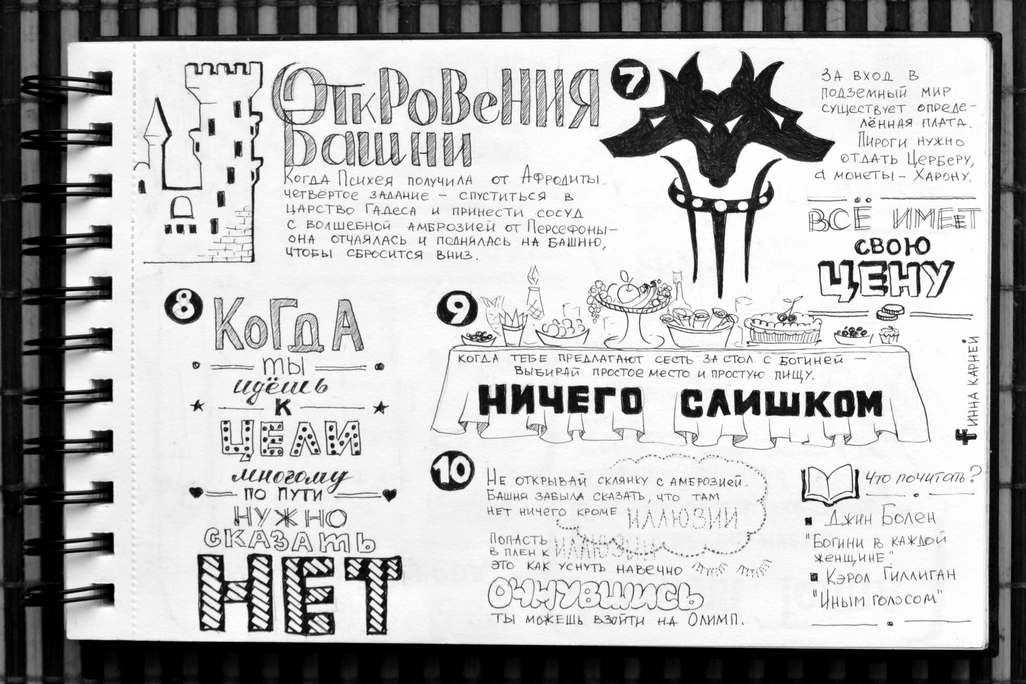 Откровения
Башни
Когда Психея получила от Афродиты
четвертое задание – спуститься в
царство Гадеса и принести сосуд
с волшебной амброзией от Персефоны –
она отчаялась и поднялась на башню,
чтобы сбросится вниз.
7
За вход в
подземный мир
существует опреде-
лённая плата.
Пироги нужно
отдать Церберу,
а монеты – Харону.
Всё имеет
свою
цену
8
Когда
ты
идёшь
к
цели
многому
по пути
нужно
сказать
нет
9
Когда тебе предлагают сесть за стол с богиней –
выбирай простое место и простую пищу.
Ничего слишком
f Инна Карней
10
Не открывай склянку с амброзией.
Башня забыла сказать, что там
нет ничего кроме иллюзии
Попасть
в плен к иллюзии
это как уснуть навечно
Очнувшись
ты можешь взойти на Олимп.
Что почитать?
Джин Болен
"Богини в каждой
женщине"
Кэрол Гиллиган
"Иным голосом"